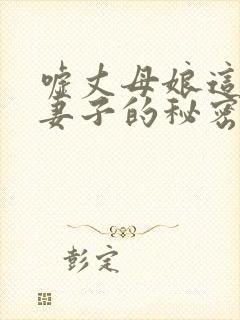 嘘丈母娘這
妻子的秘密
彭定